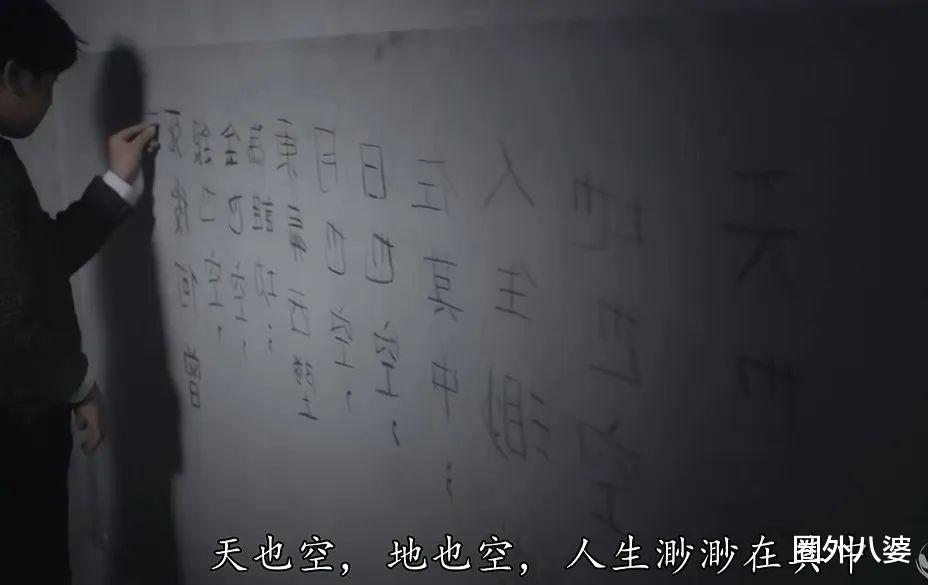 天也
地也空
人生渺
在其中；
日也空，
月也空，
金也空，
銀也空，
後何曾
天也空，地也空，人生渺渺在其中
圈外八婆